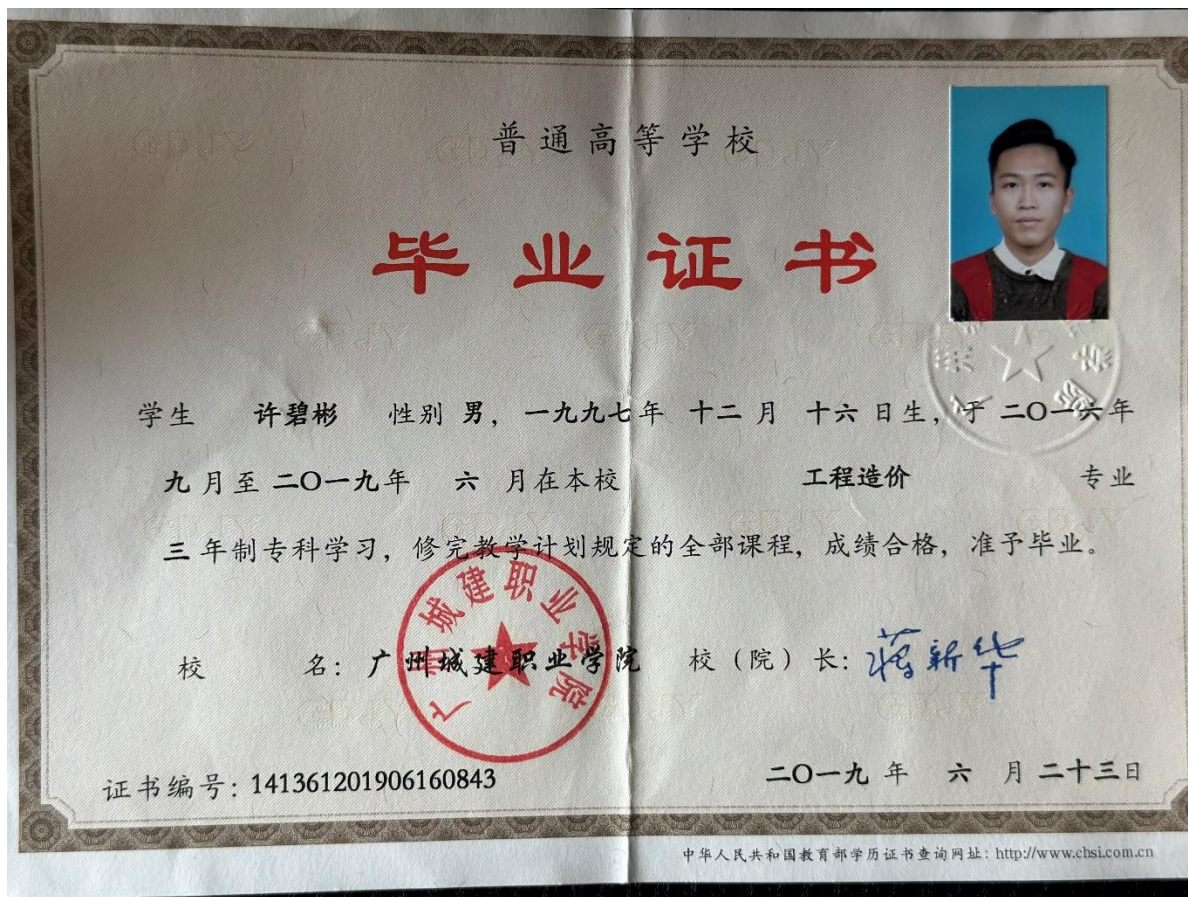 普通高等学校
毕业证书
学生 许碧彬 性别 男，一九九七年 十二 月 十六 日生，于 二〇一六年
九 月至 二〇一九年 六 月在本校 工程造价 专业
三 年制专科学习，修完教学计划规定的全部课程，成绩合格，准予毕业。
校 名：广州城建职业学院 校（院）长：蒋新华
广州城建职业学院
证书编号：141361201906160843 二〇一九 年 六 月 二十三日
中华人民共和国教育部学历证书查询网址：http://www.chsi.com.cn